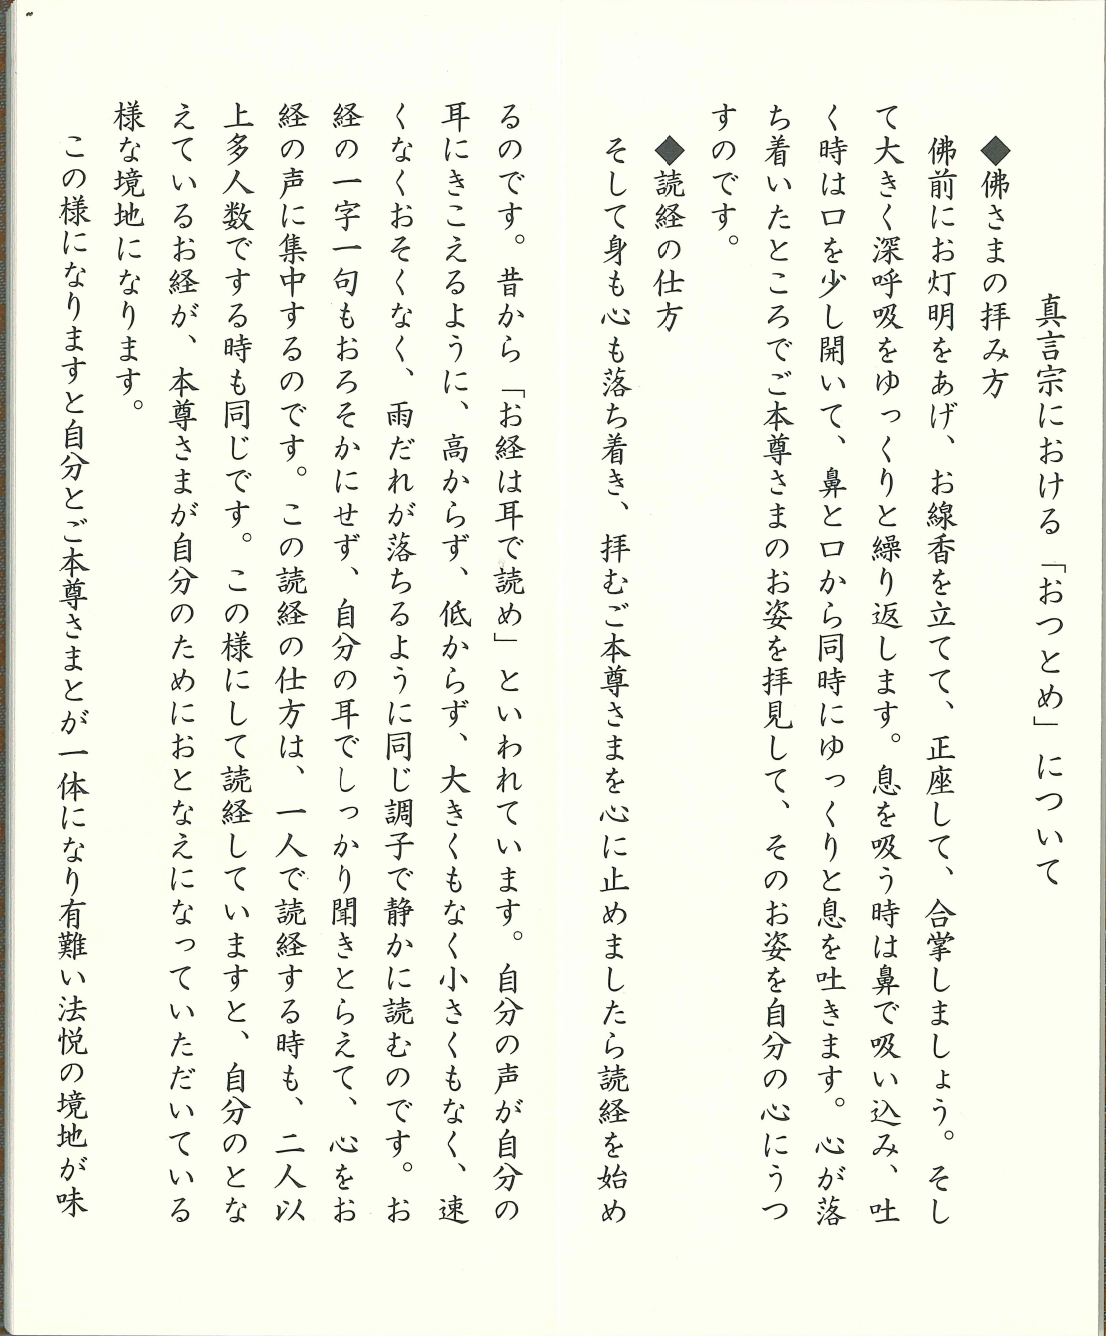 真言宗における「おつとめ」について
◆佛さまの拝み方
佛前にお灯明をあげ、お線香を立てて、正座して、合掌しましょう。そし
て大きく深呼吸をゆっくりと繰り返します。息を吸う時は鼻で吸い込み、吐
く時は口を少し開いて、鼻と口から同時にゆっくりと息を吐きます。心が落
ち着いたところでご本尊さまのお姿を拝見して、そのお姿を自分の心にうつ
すのです。
◆読経の仕方
そして身も心も落ち着き、拝むご本尊さまを心に止めましたら読経を始め
るのです。昔から「お経は耳で読め」といわれています。自分の声が自分の
耳にきこえるように、高からず、低からず、大きくもなく小さくもなく、速
くなくおそくなく、雨だれが落ちるように同じ調子で静かに読むのです。お
経の一字一句もおろそかにせず、自分の耳でしっかり聞きとらえて、心をお
経の声に集中するのです。この読経の仕方は、一人で読経する時も、二人以
上多人数でする時も同じです。この様にして読経していますと、自分のとな
えているお経が、本尊さまが自分のためにおとなえになっていただいている
様な境地になります。
この様になりますと自分とご本尊さまとが一体になり有難い法悦の境地が味